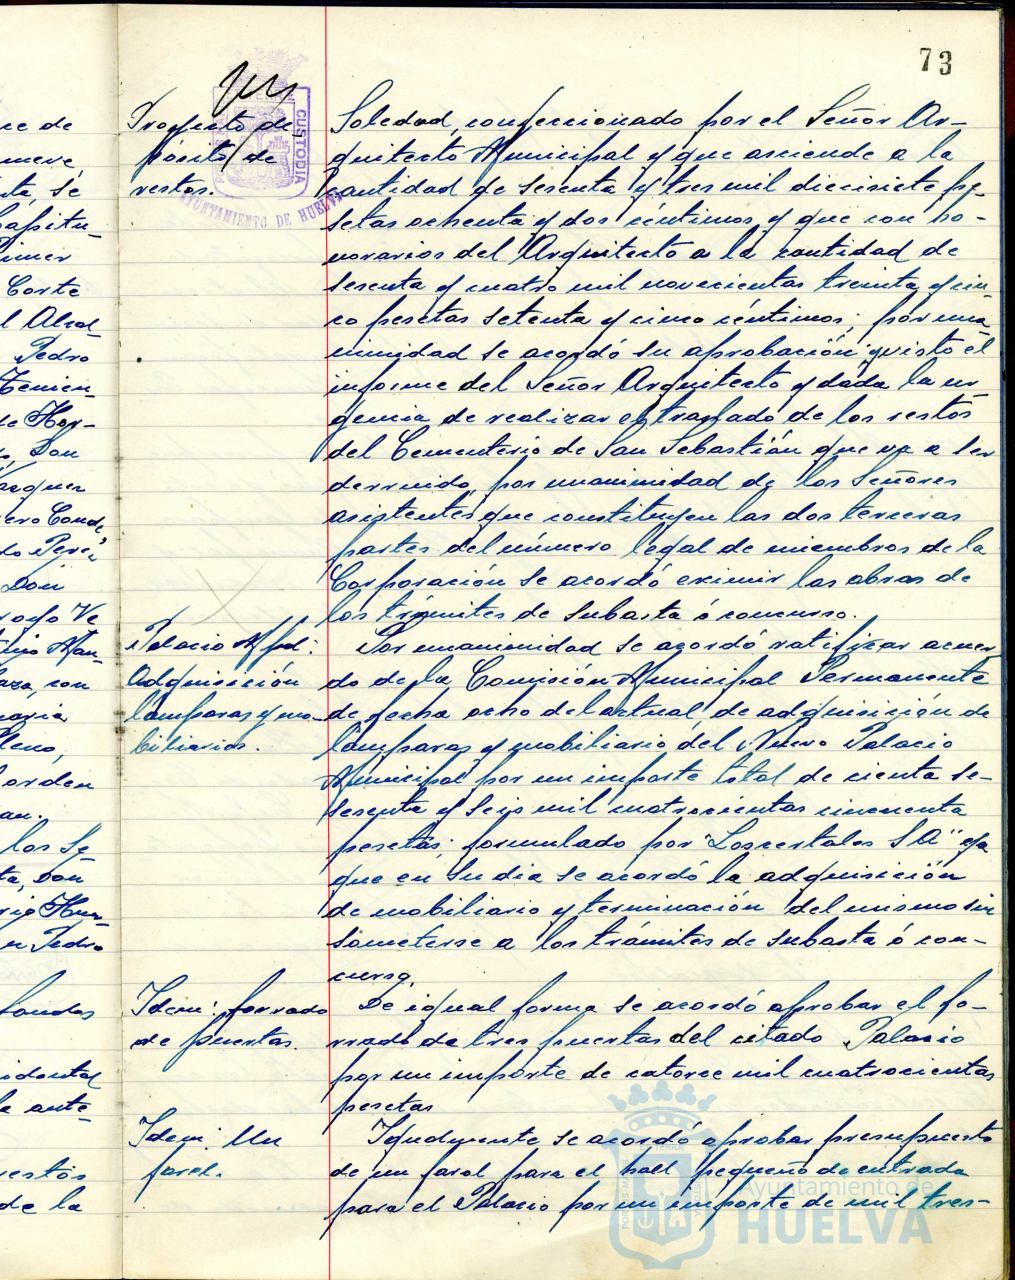 73
Proyecto de
pósito de
restos.
CUSTODIA
AYUNTAMIENTO DE HUELVA
Soledad, confeccionado por el Señor Ar-
quitecto Municipal y que asciende a la
cantidad de sesenta y tres mil diecisiete pe-
setas ochenta y dos céntimos y que con ho-
norarios del Arquitecto a la cantidad de
sesenta y cuatro mil novecientas treinta y cin-
co pesetas setenta y cinco céntimos; por una
nimidad se acordó su aprobación y visto el
informe del Señor Arquitecto y dada la ur
gencia de realizar el traslado de los restos
del Cementerio de San Sebastián que va a ser
derruido, por unanimidad de los Señores
asistentes que constituyen las dos terceras
partes del número legal de miembros de la
Corporación se acordó eximir las obras de
los trámites de subasta ó concurso.
Palacio Mpal:
Adquisición
lámparas y mo-
biliarios.
Por unanimidad se acordó ratificar acuer-
do de la Comisión Municipal Permanente
de fecha ocho del actual de adquisición de
lámparas y mobiliario del Nuevo Palacio
Municipal por un importe total de cienta se-
sesenta y seis mil cuatrocientas cincuenta
pesetas; formulado por "Loscertales S A" ya
que en su dia se acordó la adquisición
de mobiliario y terminación del mismo sin
someterse a los trámites de subasta ó con-
curso.
Idem: forrado
de puertas.
De igual forma se acordó aprobar el fo-
rrado de tres puertas del citado Palacio
por un importe de catorce mil cuatrocientas
pesetas
Idem: Un
farol.
Igualmente se acordó aprobar presupuesto
de un farol para el hall pequeño de entrada
para el Palacio por un importe de mil tres-
Ayuntamiento de
HUELVA
ce de
ta, se
Primer
Corte
l Alcal-
Pedro
Tenien-
de Hor-
Don
ero Conde,
do Pere
Don
royo Ve
aza, con
naria
leno,
orden
an.
los Se
ta, Don
n Pedro
idental
a ante-
restos
de la